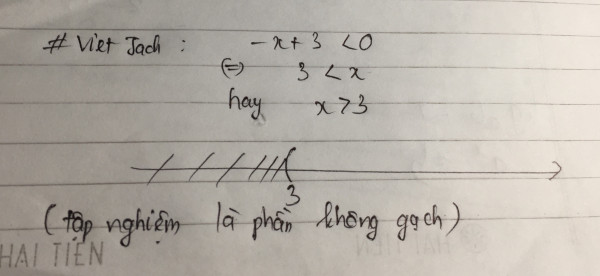 # Việt Jach : -x + 3 < 0
(=) 3 < x
hay x > 3
3
(tập nghiệm là phần không gạch)
HAI TIEN